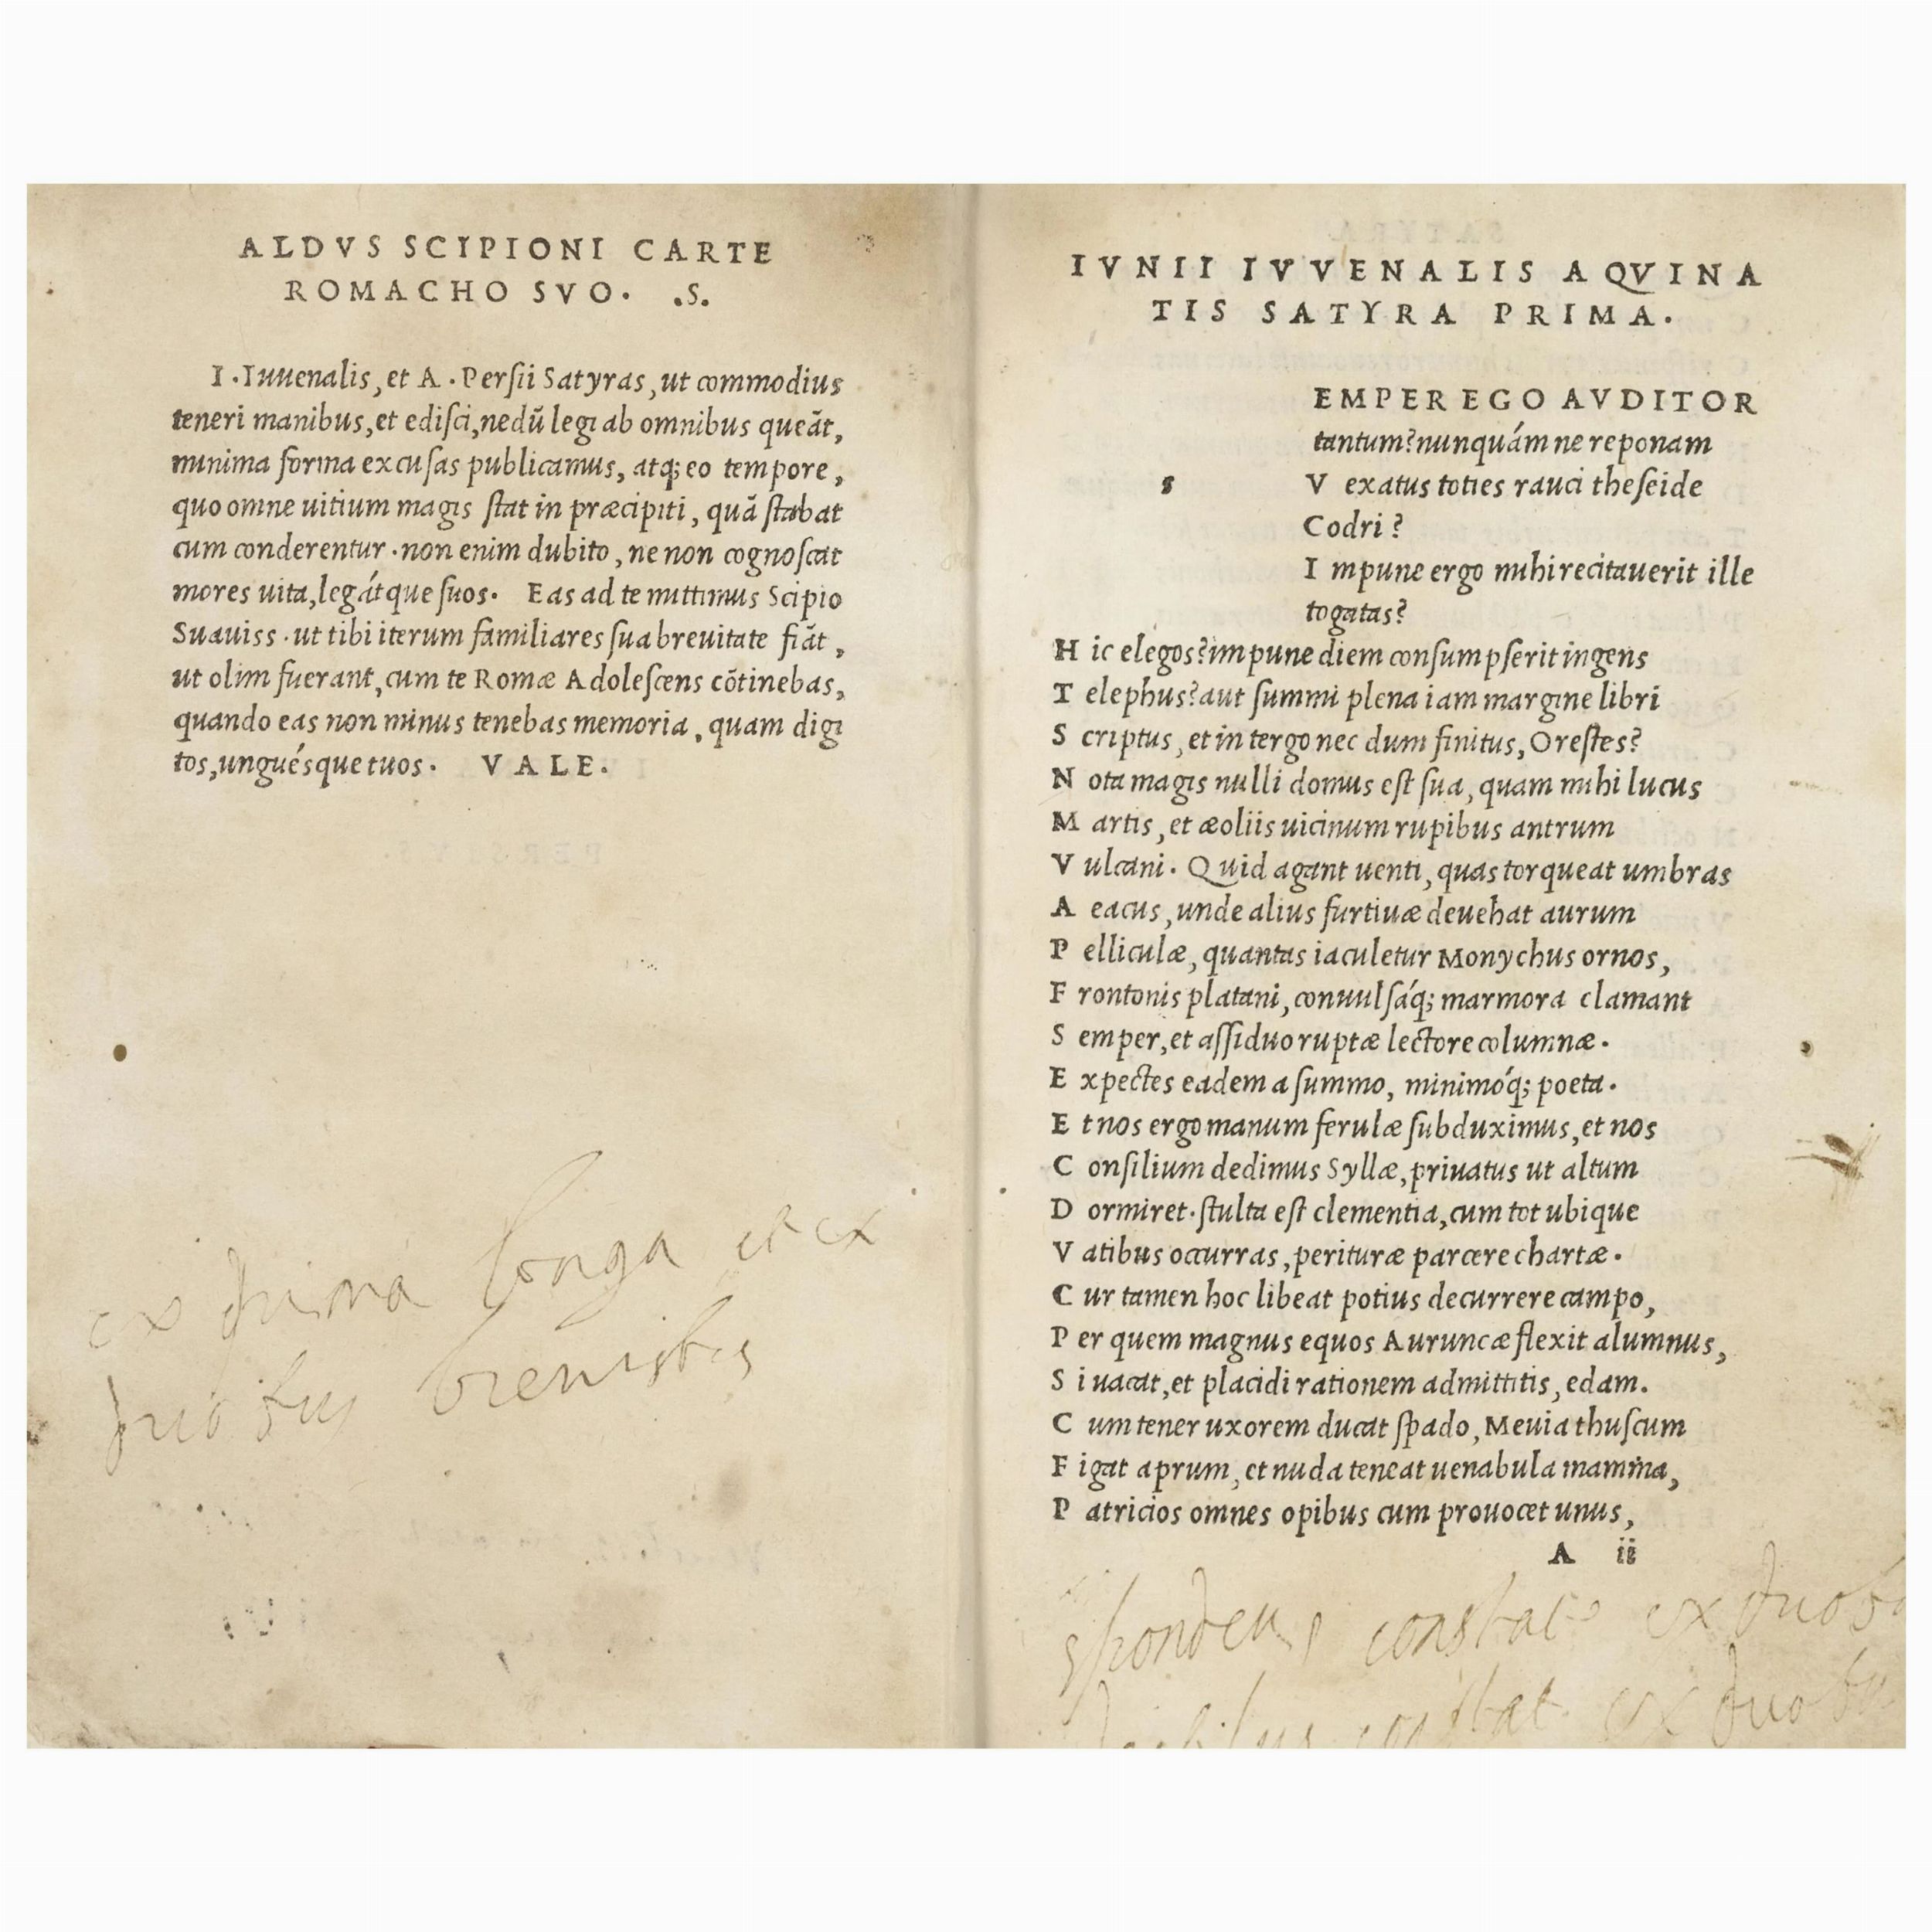 ALDVS SCIPIONI CARTE
ROMACHO SVO. .S.
I. Iuuenalis, et A. Persii Satyras, ut commodius
teneri manibus, et edisci, nedū legi ab omnibus queāt,
minima forma excusas publicamus, atq; eo tempore,
quo omne uitium magis stat in præcipiti, quā stabat
cum conderentur. non enim dubito, ne non cognoscat
mores uita, legátque suos. Eas ad te mittimus Scipio
Suauiss. ut tibi iterum familiares sua breuitate fiāt,
ut olim fuerant, cum te Romæ Adolescens cōtinebas,
quando eas non minus tenebas memoria, quam digi
tos, unguésque tuos. VALE.
ex prima longa et ex
duobus breuibus
IVNII IVVENALIS AQVINA
TIS SATYRA PRIMA.
s
EMPER EGO AVDITOR
tantum? nunquám ne reponam
V exatus toties rauci theseide
Codri?
I mpune ergo mihi recitauerit ille
togatas?
H ic elegos? impune diem consumpserit ingens
T elephus? aut summi plena iam margine libri
S criptus, et in tergo nec dum finitus, Orestes?
N ota magis nulli domus est sua, quam mihi lucus
M artis, et æoliis uicinum rupibus antrum
V ulcani. Quid agant uenti, quas torqueat umbras
A eacus, unde alius furtiuæ deuehat aurum
P elliculæ, quantas iaculetur Monychus ornos,
F rontonis platani, conuulsáq; marmora clamant
S emper, et assiduo ruptæ lectore columnæ.
E xpectes eadem a summo, minimóq; poeta.
E t nos ergo manum ferulæ subduximus, et nos
C onsilium dedimus Syllæ, priuatus ut altum
D ormiret. stulta est clementia, cum tot ubique
V atibus occurras, perituræ parcere chartæ.
C ur tamen hoc libeat potius decurrere campo,
P er quem magnus equos Auruncæ flexit alumnus,
S i uacat, et placidi rationem admittitis, edam.
C um tener uxorem ducat spado, Meuia thuscum
F igat aprum, et nuda teneat uenabula mamma,
P atricios omnes opibus cum prouocet unus,
A ii
spondeus constat ex
constat ex